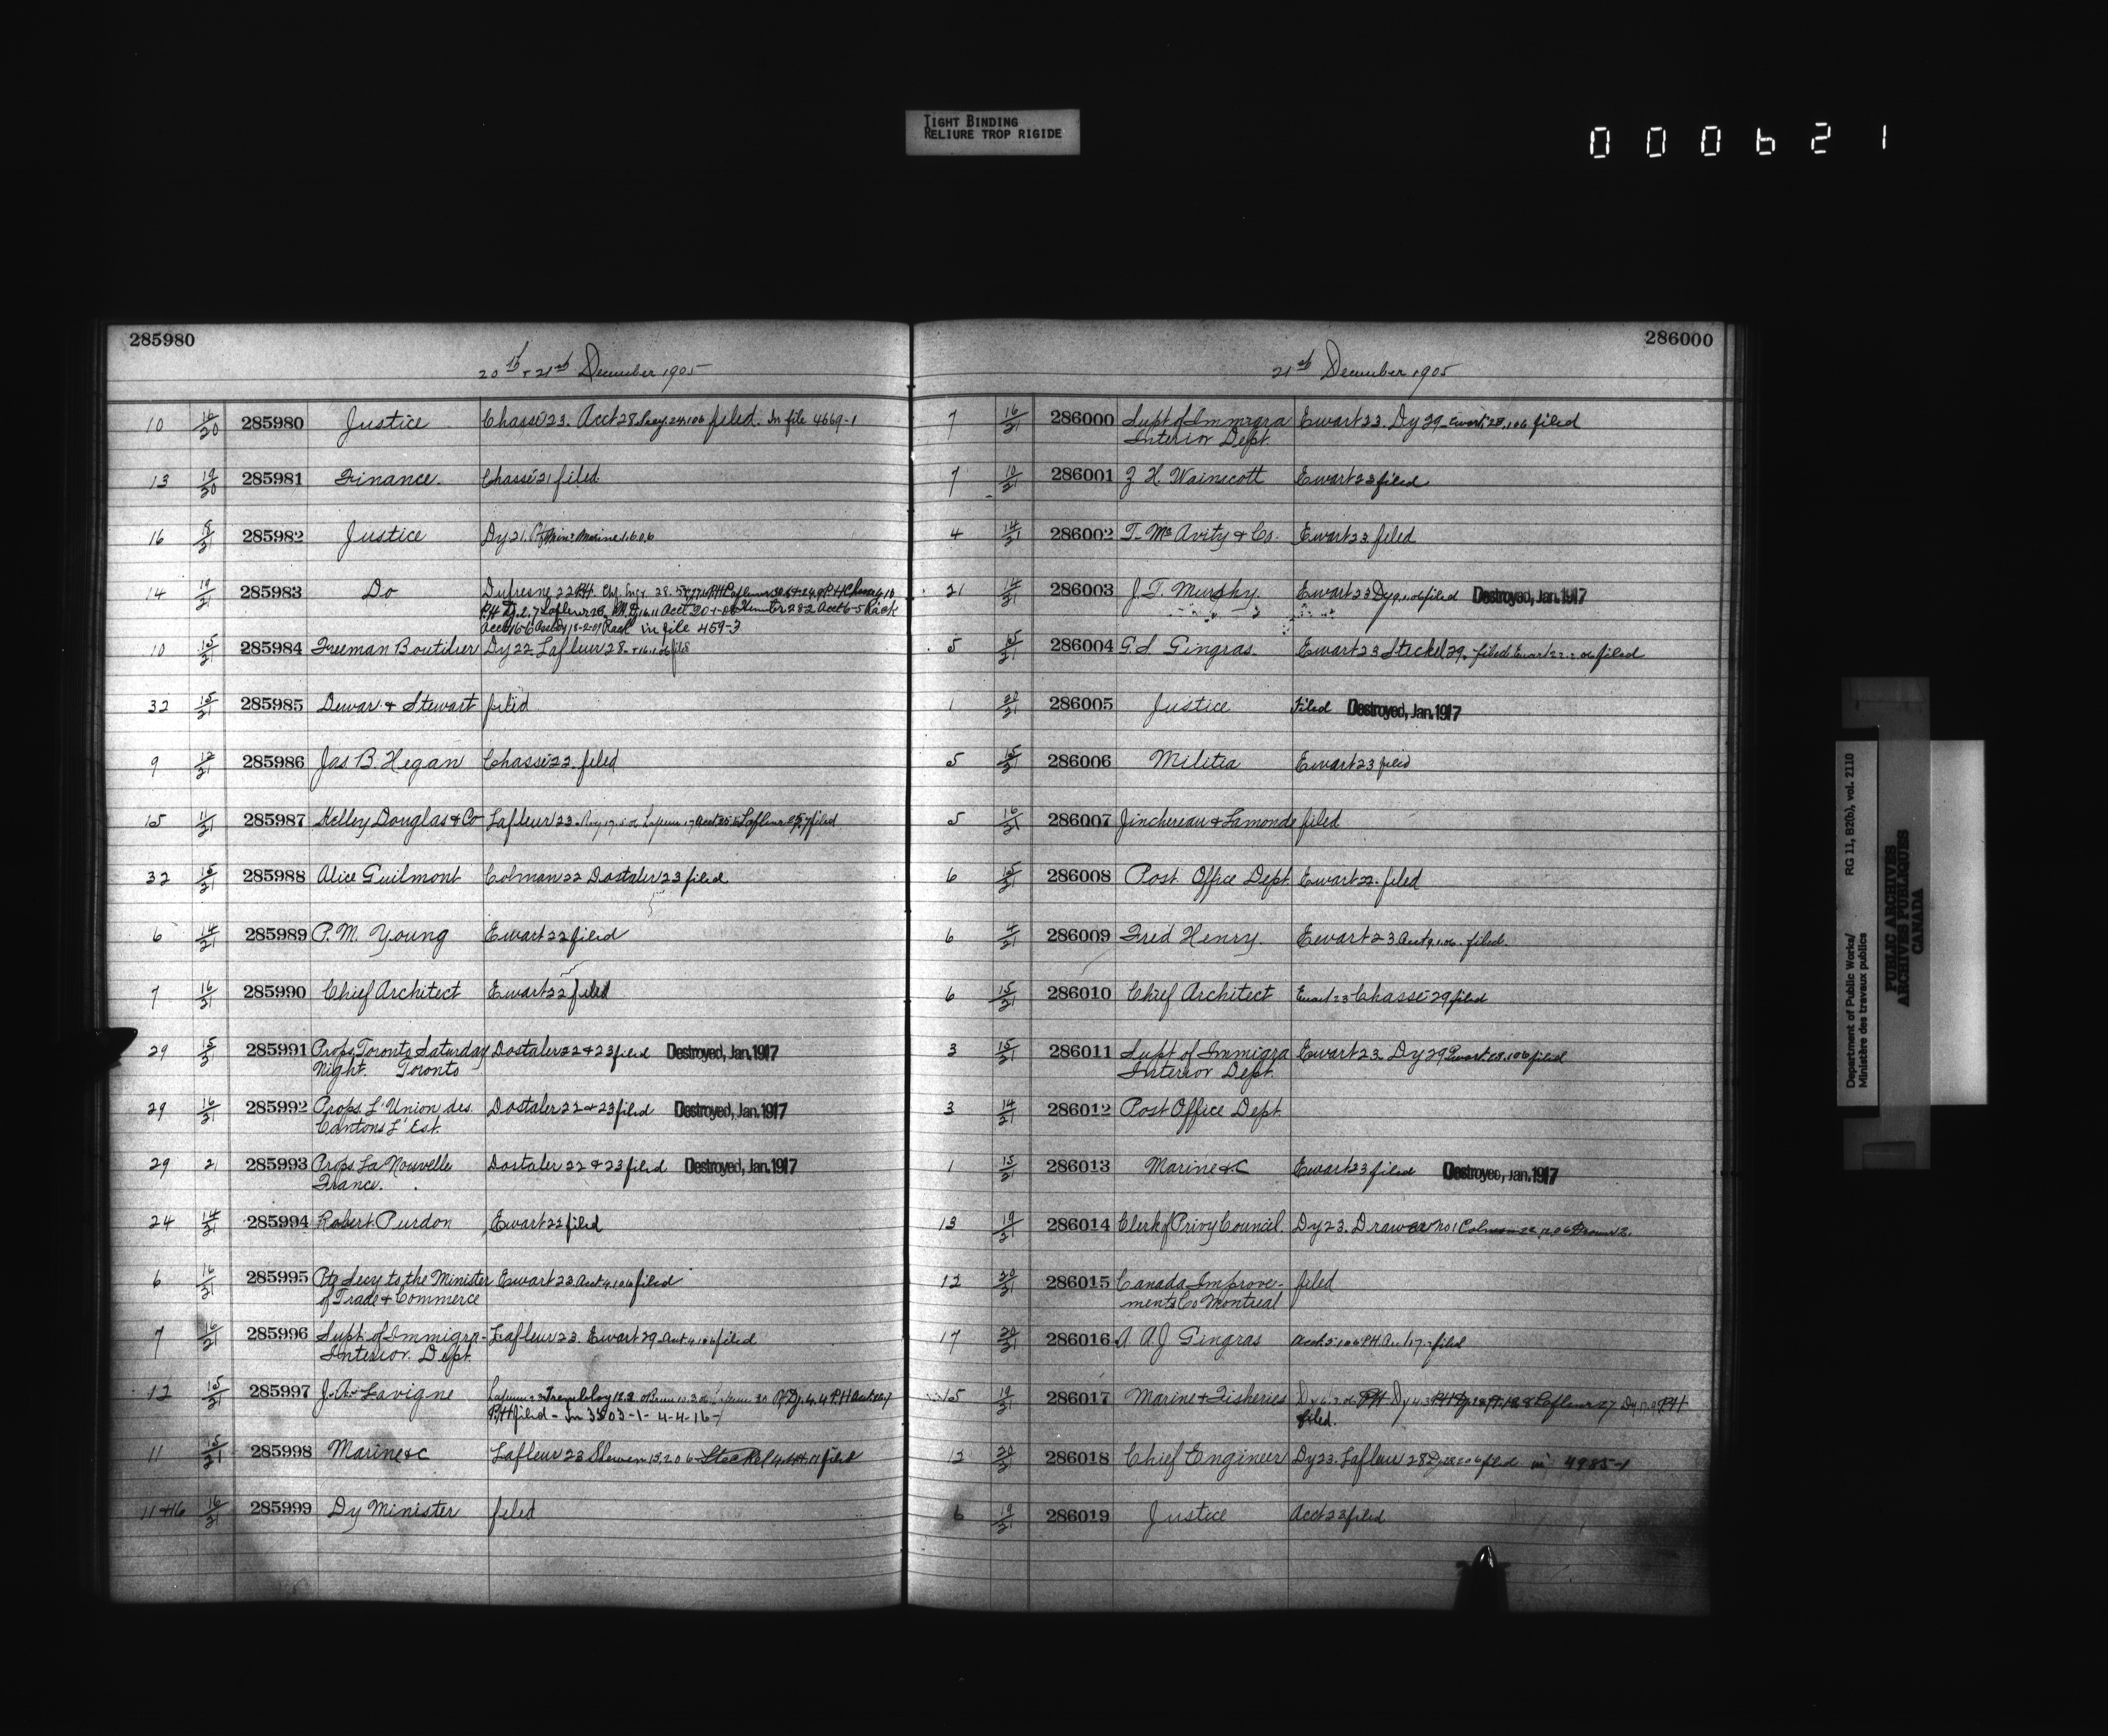 TIGHT BINDING
RELIURE TROP RIGIDE
000621
285980
20th & 21st December 1905
10 16/20 285980 Justice Chassé 23. Acct 28 filed. In file 4669-1
13 19/20 285981 Finance. Chassé 21 filed.
16 285982 Justice Dy 21. Marine
14 19/21 285983 Do Dufresne 22 PH. Chf. Engr. 28.
in file 459-3
10 15/21 285984 Freeman Boutilier Dy 22 Lafleur 28
32 15/21 285985 Dewar & Stewart filed
9 285986 Jas B. Hegan Chassé 22 filed
15 11/21 285987 Kelley Douglas & Co Lafleur 23. filed
32 15/21 285988 Alice Guilmont Colman 22 Dostaler 23 filed
6 14/21 285989 P. M. Young Ewart 22 filed
7 16/21 285990 Chief Architect Ewart 22 filed
29 15/21 285991 Props. Toronto Saturday Dostaler 22 & 23 filed Destroyed, Jan. 1917
Night. Toronto
29 16/21 285992 Props. L'Union des Dostaler 22 & 23 filed Destroyed, Jan. 1917
Cantons L'Est.
29 21 285993 Props. La Nouvelle Dostaler 22 & 23 filed Destroyed, Jan. 1917
France.
24 14/21 285994 Robert Purdon Ewart 22 filed
6 16/21 285995 Secy to the Minister Ewart 23 Acct 4.1.06 filed
of Trade & Commerce
7 16/21 285996 Supt. of Immigra- Lafleur 23. Ewart 29 filed
Interior Dept.
12 15/21 285997 J. A. Lavigne Tremblay
PH filed - In 3503-1- 4-4-16-
11 15/21 285998 Marine &c Lafleur 23 Shewen 15.2.06 Steckel filed
11 & 16 16/21 285999 Dy Minister filed
286000
21st December 1905
7 16/21 286000 Supt of Immigra Ewart 23. Dy 29 filed
Interior Dept.
7 286001 Z. H. Wainscott Ewart 23 filed
4 14/21 286002 T. McAvity & Co. Ewart 23 filed
21 14/21 286003 J. T. Murphy. Ewart 23 Dy 9.1.06 filed Destroyed, Jan. 1917
5 15/21 286004 G. S. Gingras. Ewart 23 Steckel 29. filed Ewart filed
1 20/21 286005 Justice Filed Destroyed, Jan. 1917
5 15/21 286006 Militia Ewart 23 filed
5 16/21 286007 Jinchereau & Lamonde filed
6 15/21 286008 Post Office Dept Ewart 22. filed
6 286009 Fred Henry. Ewart 23 Acct 9.1.06. filed.
6 15/21 286010 Chief Architect Ewart 23 Chassé 29 filed
3 15/21 286011 Supt of Immigra Ewart 23. Dy 29 filed
Interior Dept.
3 14/21 286012 Post Office Dept.
1 15/21 286013 Marine &c Ewart 23 filed Destroyed, Jan. 1917
13 19/21 286014 Clerk of Privy Council. Dy 23. Drawer No 1 Colman
12 20/21 286015 Canada Improve- filed
ments Co Montreal
17 20/21 286016 A. A. J. Gingras filed
15 19/21 286017 Marine & Fisheries Lafleur 27
filed.
12 20/21 286018 Chief Engineer Dy 23. Lafleur 28 filed in 4985-1
6 19/21 286019 Justice Acct 23 filed
Department of Public Works/ RG 11, B2(b), vol. 2110
Ministère des travaux publics
PUBLIC ARCHIVES
ARCHIVES PUBLIQUES
CANADA